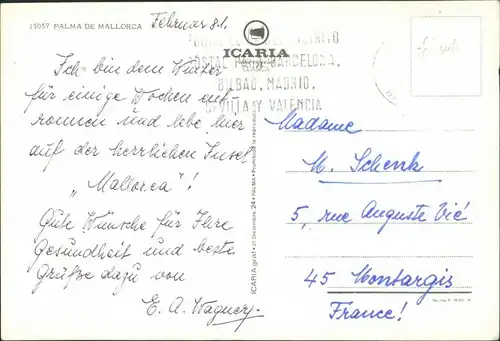 15057 PALMA DE MALLORCA
Februar 81.
ICARIA
POSTAL PARA BARCELONA,
BILBAO, MADRID,
SEVILLA Y VALENCIA
Ich bin dem Winter
für einige Wochen ent-
ronnen und lebe hier
auf der herrlichen Insel
„Mallorca"!
Gute Wünsche für Ihre
Gesundheit und beste
Grüße dazu von
E. A. Wagner
ICARIA graf • 31 Diciembre 24 • PALMA
Madame
M. Schenk
5, rue Auguste Vié
45 Montargis
France!